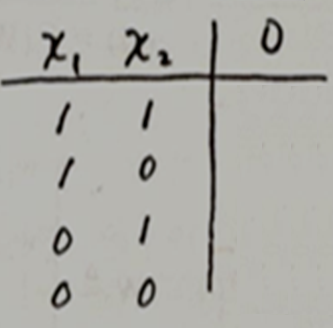 x₁ x₂ 0
1 1
1 0
0 1
0 0